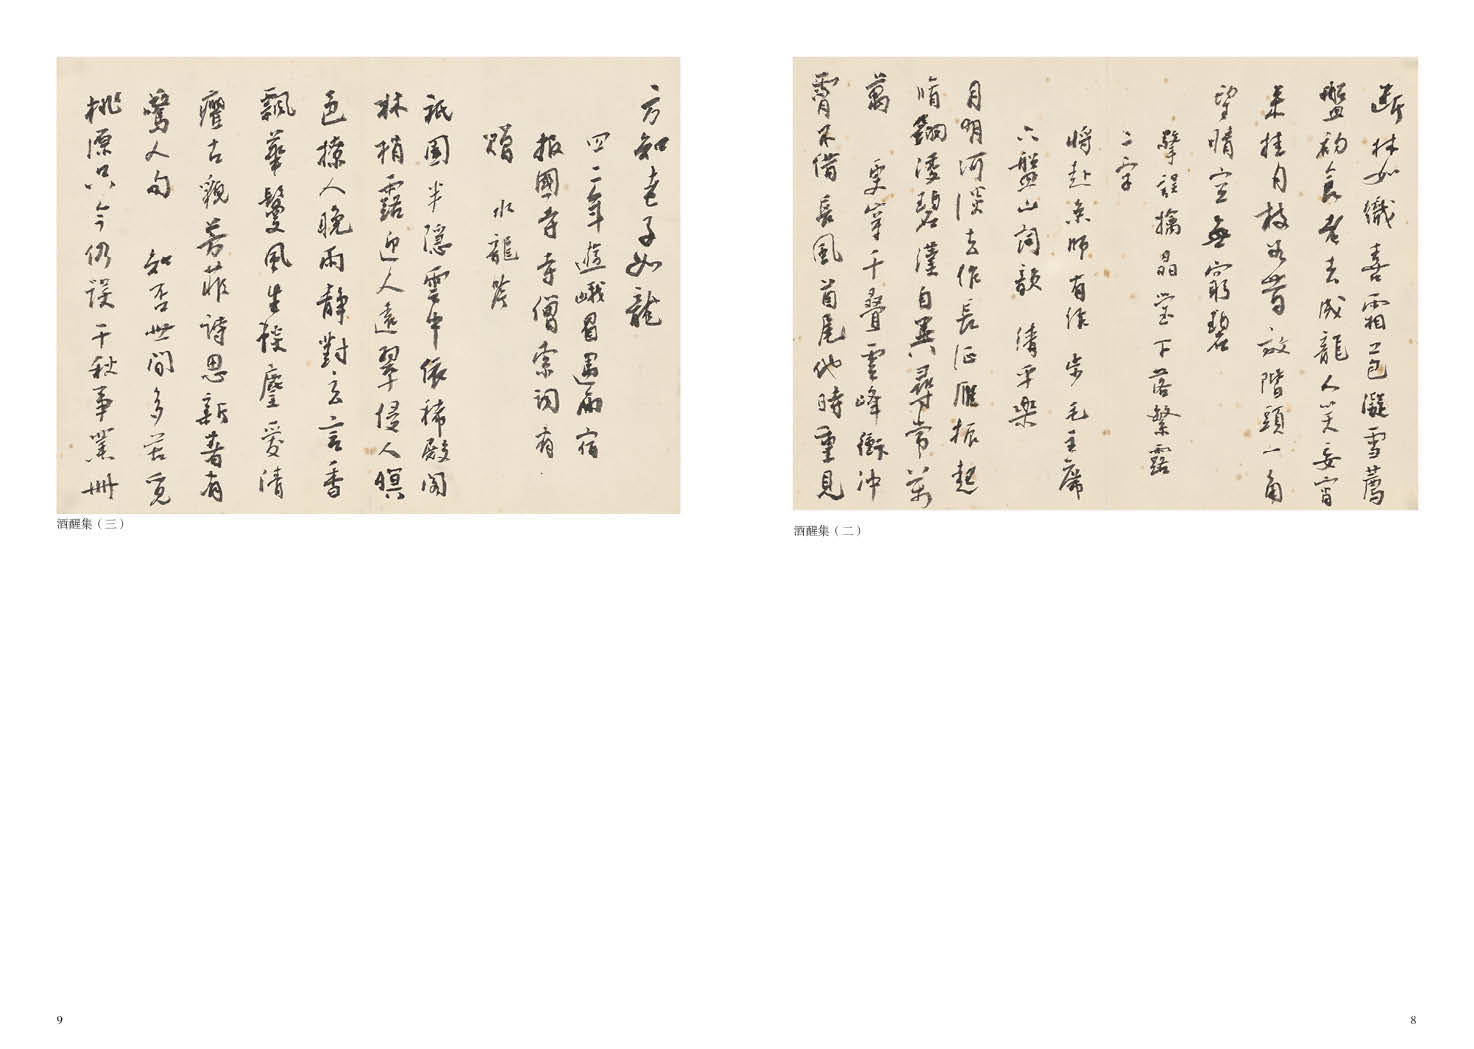 断林如織喜霜苞凝雪薦
盤初食老去成龍人笑妄宵
来挂月枝若昔放階頭一角
望晴空無窮碧
擎誤擒晶瑩下落繁露
二字
将赴京師有作步毛主席
六盤山詞韻 清平樂
月明河淡去作長征雁振起
脩翎凌碧漢自異尋常万
萬 雯岸千疊雲峰衝冲
霄不借長風首尾他時重見
酒醒集（二）
8
方知老子如龍
四二年遊峨眉遇雨宿
報國寺寺僧索詞有
贈 水龍吟
祇園半隱雲中依稀殿閣
林梢露迎人遠翠侵人暝
色撩人晚雨静對忘言香
飄華鬘風生談麈愛清
癯古貌芳菲詩思新著有
驚人句 知否世間多苦覓
桃源只今仍誤千秋事業卌
酒醒集（三）
9